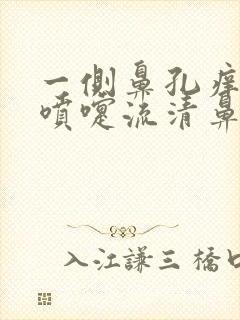 一側鼻孔痒
噴嚏流清鼻
入江謙三橋口